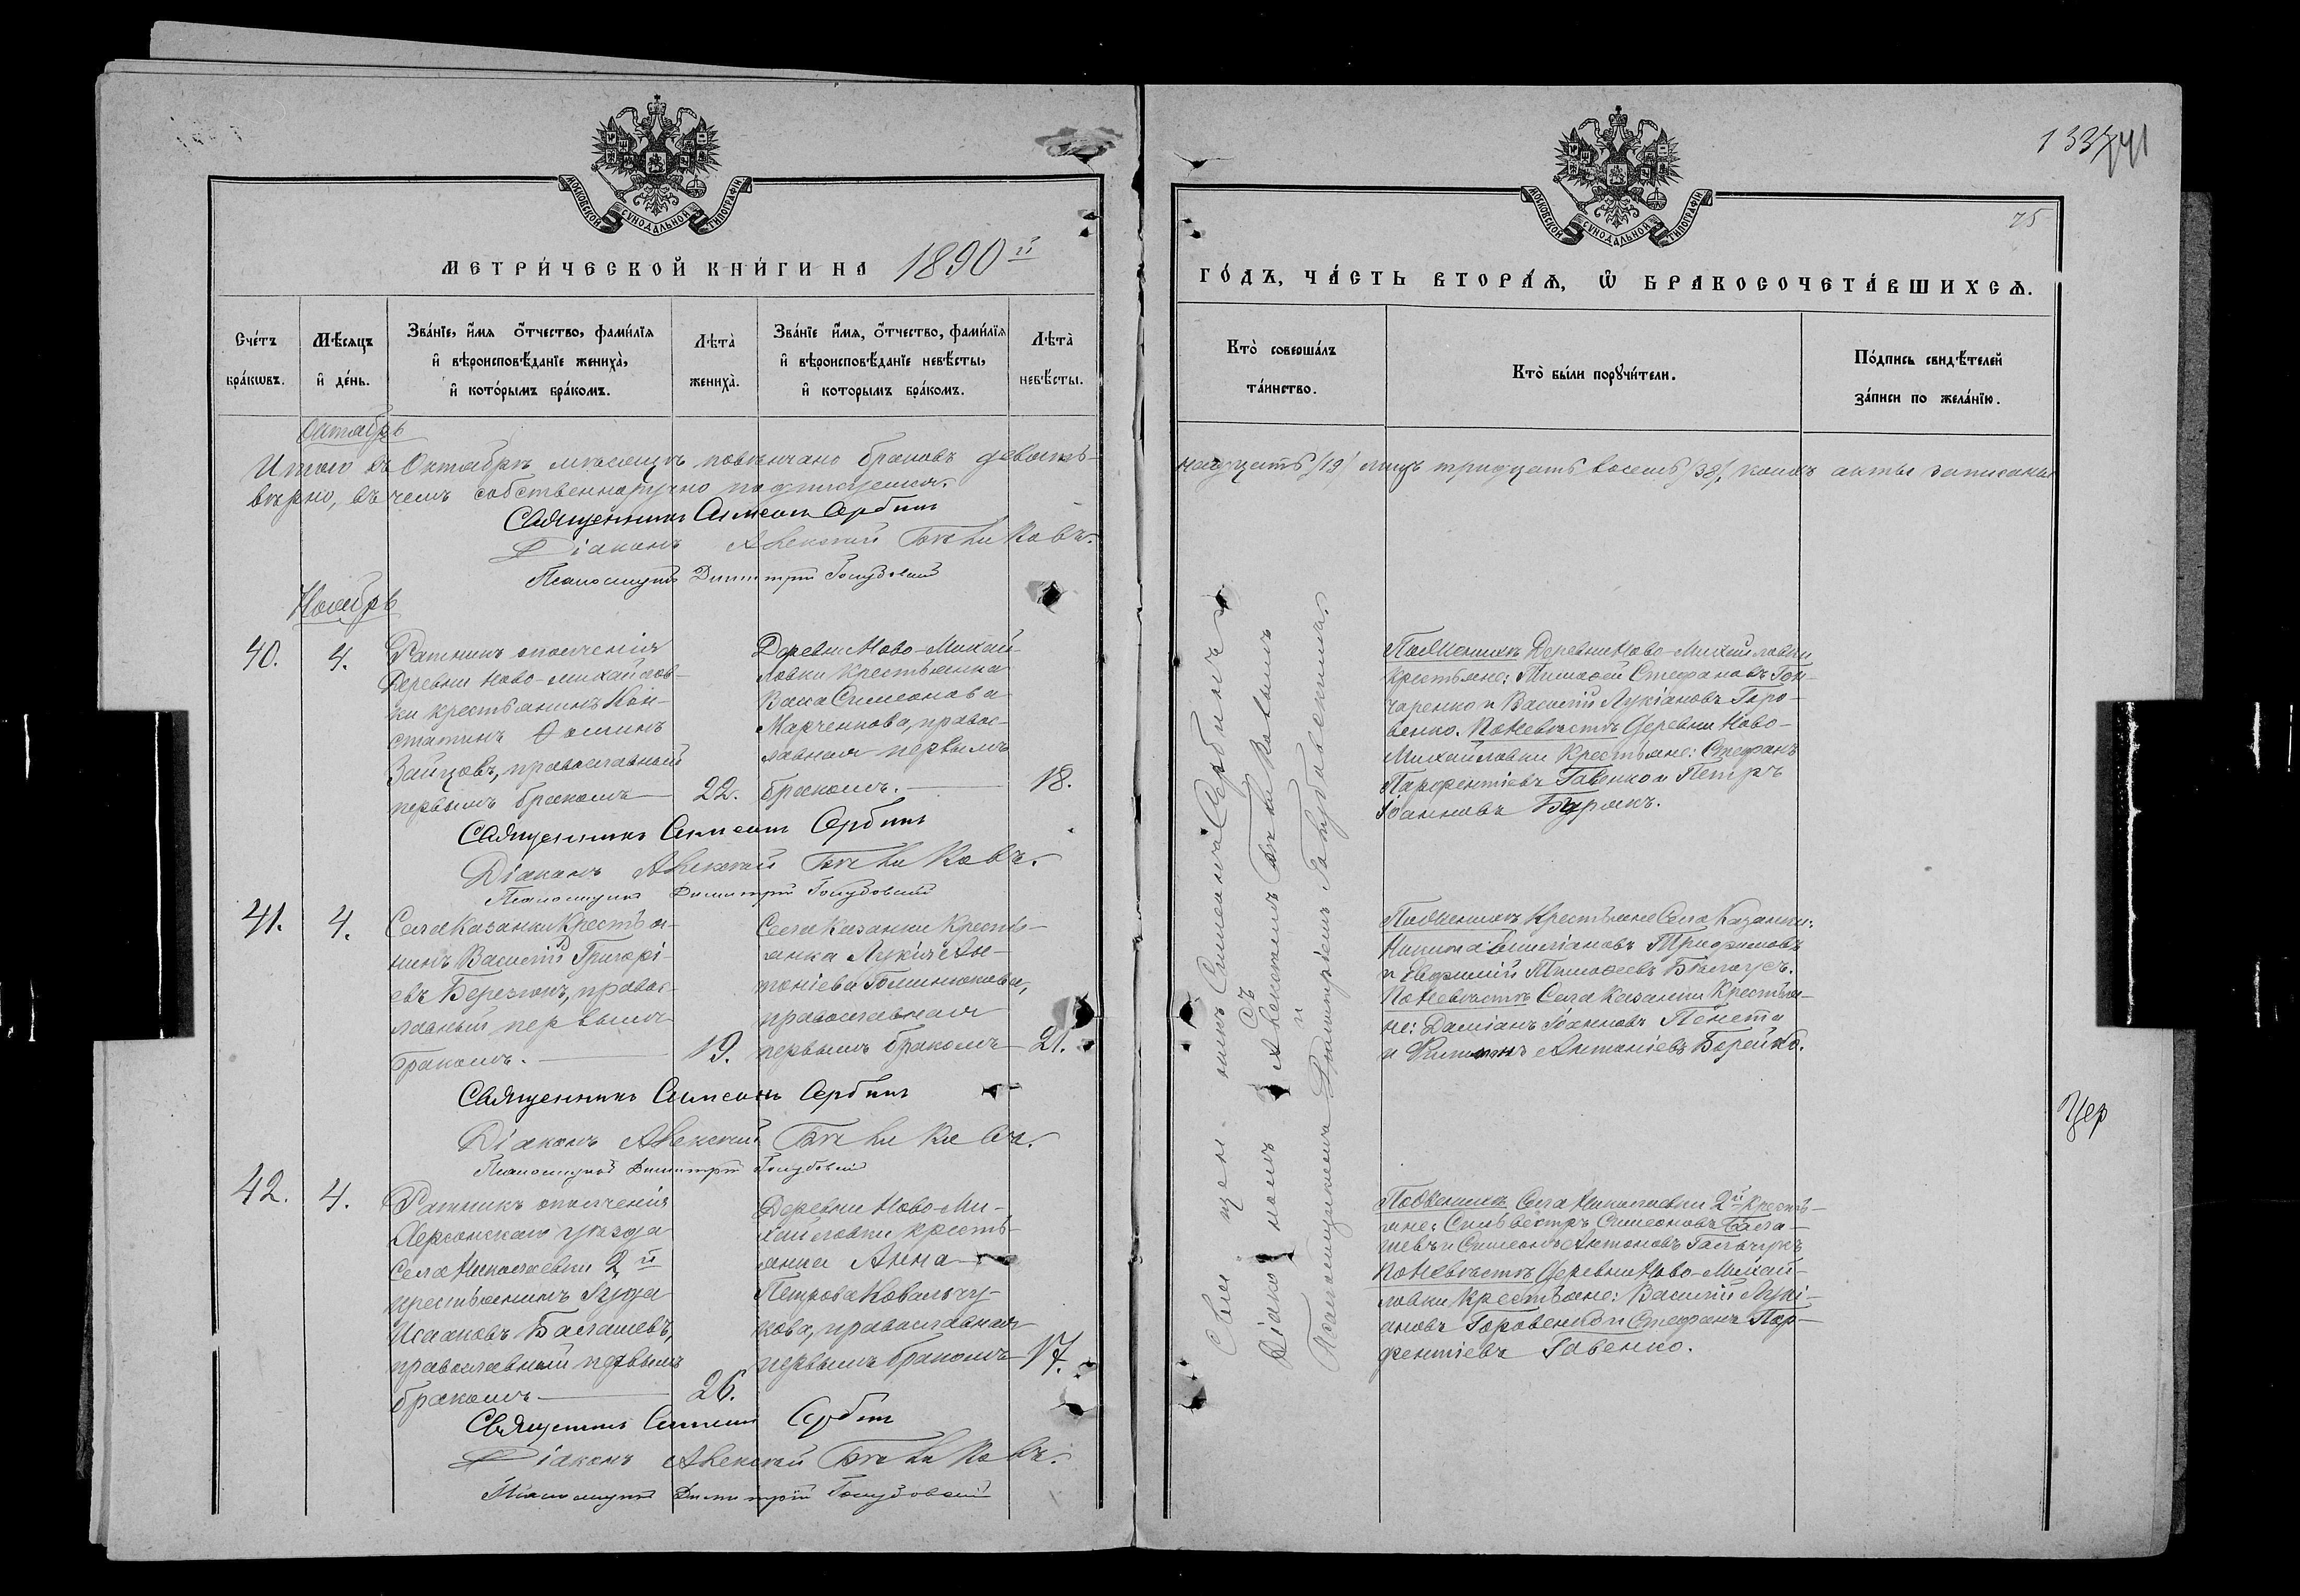 МОСКОВСКОЙ СѴНОДАЛЬНОЙ ТИПОГРАФІИ
МЕТРИ́ЧЕСКОЙ КНИ́ГИ НА 1890й
Сче́тъ бра́кѡвъ.
Мѣ́сяцъ и҆ де́нь.
Зва́нїе, и҆́мя ѻ҆́тчество, фами́лїя
и҆ вѣроисповѣ́данїе жениха̀,
и҆ кото́рымъ бра́комъ.
Лѣта̀ жениха̀.
Зва́нїе и҆́мя, ѻ҆́тчество, фами́лїя
и҆ вѣроисповѣ́данїе невѣ́сты,
и҆ которымъ бра́комъ.
Лѣта̀ невѣ́сты.
Октябрь
Итого въ Октябрѣ мѣсяцѣ повѣнчано браковъ девять-
вѣрно, въ чемъ собственноручно подписуемся.
Священникъ Симеонъ Сербинъ
Діаконъ Алексѣй
Псаломщикъ Димитрій Голубовскій
Ноябрь
40.
4.
Ратникъ ополченія
Деревни Ново-Михайлов-
ки крестьянинъ Кон-
стантинъ Ѳоминъ
Зайцовъ, православный
первымъ бракомъ
22.
Деревни Ново-Михай-
ловки Крестьянка
Васса Симеонова
Марченкова, правос-
лавная первымъ
бракомъ.
18.
Священникъ Симеонъ Сербинъ
Діаконъ Алексѣй
Псаломщикъ Димитрій Голубовскій
41.
4.
Села Казанки Крестья-
нинъ Василій Григорі-
евъ Березюкъ, правос-
лавный первымъ
бракомъ.
19.
Села Казанки Кресть-
янка Лукія Ан-
тоніева
православная
первымъ бракомъ
21.
Священникъ Симеонъ Сербинъ
Діаконъ Алексѣй
Псаломщикъ Димитрій Голубовскій
42.
4.
Ратникъ ополченія
Херсонскаго уѣзда
Села Николаевки 2й
крестьянинъ Іуда
Исааковъ Балашевъ,
православный первымъ
бракомъ
26.
Деревни Ново-Ми-
хайловки кресть-
янка Анна
Петрова Ковальчу-
кова, православная
первымъ бракомъ
17.
Священникъ Симеонъ Сербинъ
Діаконъ Алексѣй
Псаломщикъ Димитрій Голубовскій
МОСКОВСКОЙ СѴНОДАЛЬНОЙ ТИПОГРАФІИ
75
ГО́ДЪ, ЧА́СТЬ ВТОРА́Ѧ, Ѡ҆ БРАКОСОЧЕТА́ВШИХСѦ.
Кто̀ соверша́лъ та́инство.
Кто̀ бы́ли порꙋчи́тели.
По́дпись свидѣ́телей за́писи по жела́нїю.
надцать /19/ лицъ тридцать восемь /38/, коихъ акты записаны
Священникомъ Симеономъ Сербинымъ
съ
Діакономъ Алексѣемъ
и
Псаломщикомъ Димитріемъ Голубовскимъ.
По женихѣ Деревни Ново-Михайловки
крестьяне: Тимоѳей Стефановъ Гон-
чаренко и Василій Лукіановъ Горо-
венко. По невѣстѣ Деревни Ново-
Михайловки Крестьяне: Стефанъ
Парфентіевъ Гавенко и Петръ
Іоанновъ Бурякъ.
По женихѣ Крестьяне Села Казанки:
Никита
и Евфимій Тимоѳеевъ Бѣлоусъ.
По невѣстѣ Села Казанки Крестья-
не: Даміанъ Іоанновъ
и Филиппъ Антоніевъ Борейко.
По женихѣ Села Николаевки 2й Кресть-
яне: Сильвестръ Симеоновъ Бала-
шевъ и Симеонъ Антоновъ Гальчукъ
По невѣстѣ Деревни Ново-Михай-
ловки Крестьяне: Василій Лукі-
ановъ Горовенко и Стефанъ Пар-
фентіевъ Гавенко.